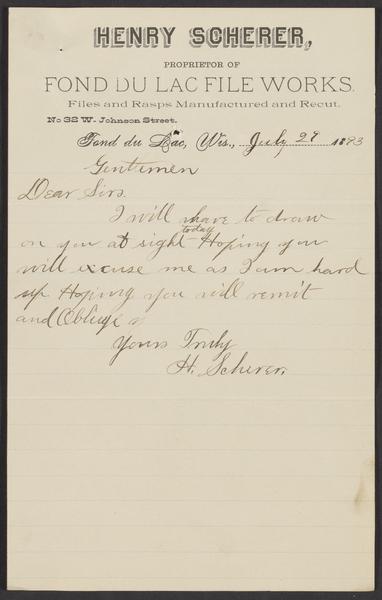 HENRY SCHERER,
PROPRIETOR OF
FOND DU LAC FILE WORKS.
Files and Rasps Manufactured and Recut.
No 32 W. Johnson Street.
Fond du Lac, Wis., July 29 1893
Gentlemen
Dear Sirs
I will have to draw
on you at sight today Hoping you
will excuse me as I am hard
up Hoping you will remit
and Oblige
Yours Truly
H. Scherer.